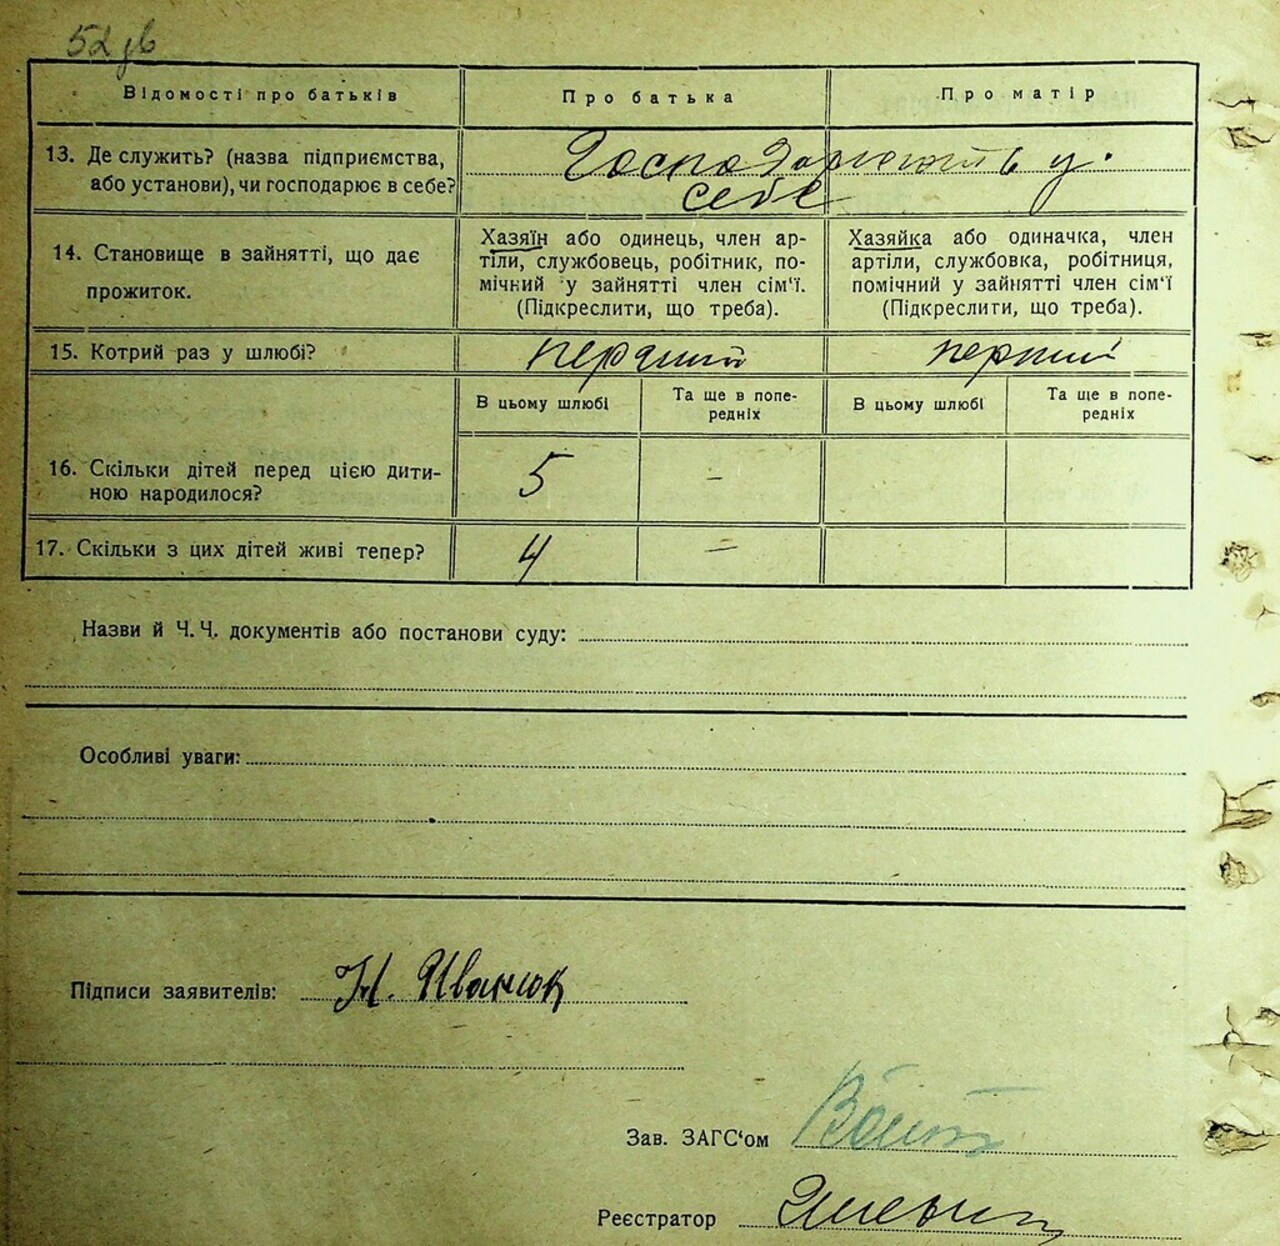 52 зв
Відомості про батьків
Про батька
Про матір
13. Де служить? (назва підприємства,
або установи), чи господарює в себе?
Господарюють у
себе
14. Становище в зайнятті, що дає
прожиток.
Хазяїн або одинець, член ар-
тіли, службовець, робітник, по-
мічний у зайнятті член сім'ї.
(Підкреслити, що треба).
Хазяйка або одиначка, член
артіли, службовка, робітниця,
помічний у зайнятті член сім'ї
(Підкреслити, що треба).
15. Котрий раз у шлюбі?
перший
перший
В цьому шлюбі
Та ще в попе-
редніх
В цьому шлюбі
Та ще в попе-
редніх
16. Скільки дітей перед цією дити-
ною народилося?
5
—
17. Скільки з цих дітей живі тепер?
4
—
Назви й Ч. Ч. документів або постанови суду:
Особливі уваги:
Підписи заявителів:
Н. Иванюк
Зав. ЗАГС'ом
Реєстратор